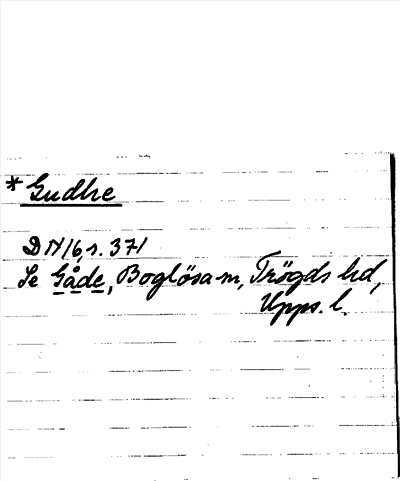 * Gudhe
DN 16, s. 371
Se Gåde, Boglösa sn, Trögds hd,
Upps. l.